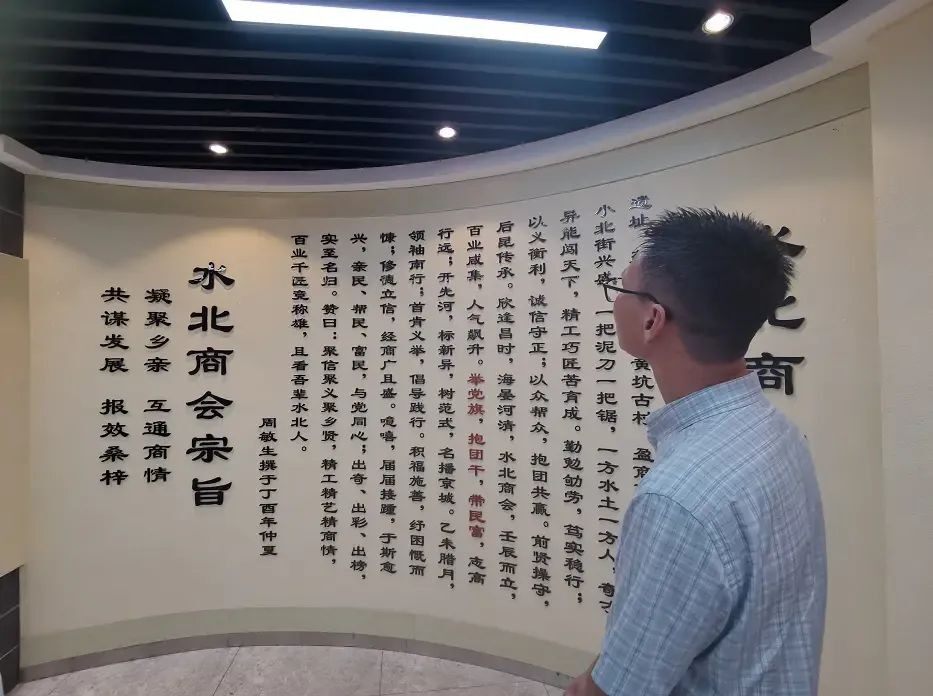 商
遗址
黄坑古村,盈商
小北街兴盛,一把泥刀一把锯,一方水土一方人,奇
异能闯天下,精工巧匠苦育成。勤勉劬劳,笃实稳行;
以义衡利,诚信守正;以众帮众,抱团共赢。前贤操守,
后昆传承。欣逢昌时,海晏河清,水北商会,壬辰而立,
百业咸集,人气飙升。举党旗,抱团干,带民富,志高
行远;开先河,标新异,树范式,名播京城。乙未腊月,
领袖南行;首肯义举,倡导践行。积福施善,纾困慨而
慷;修德立信,经商广且盛。噫嘻,届届接踵,于斯愈
兴,亲民、帮民、富民,与党同心;出奇、出彩、出榜,
实至名归。赞曰:聚信聚义聚乡贤,精工精艺精商情,
百业千匠竞称雄,且看吾辈水北人。
周敏生撰于丁酉年仲夏
水北商会宗旨
凝聚乡亲 互通商情
共谋发展 报效桑梓